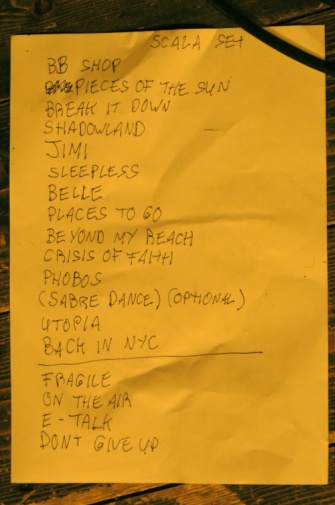 SCALA SET
BB SHOP
PIECES OF THE SUN
BREAK IT DOWN
SHADOWLAND
JIMI
SLEEPLESS
BELLE
PLACES TO GO
BEYOND MY REACH
CRISIS OF FAITH
PHOBOS
(SABRE DANCE) (OPTIONAL)
UTOPIA
BACK IN NYC
FRAGILE
ON THE AIR
E-TALK
DONT GIVE UP